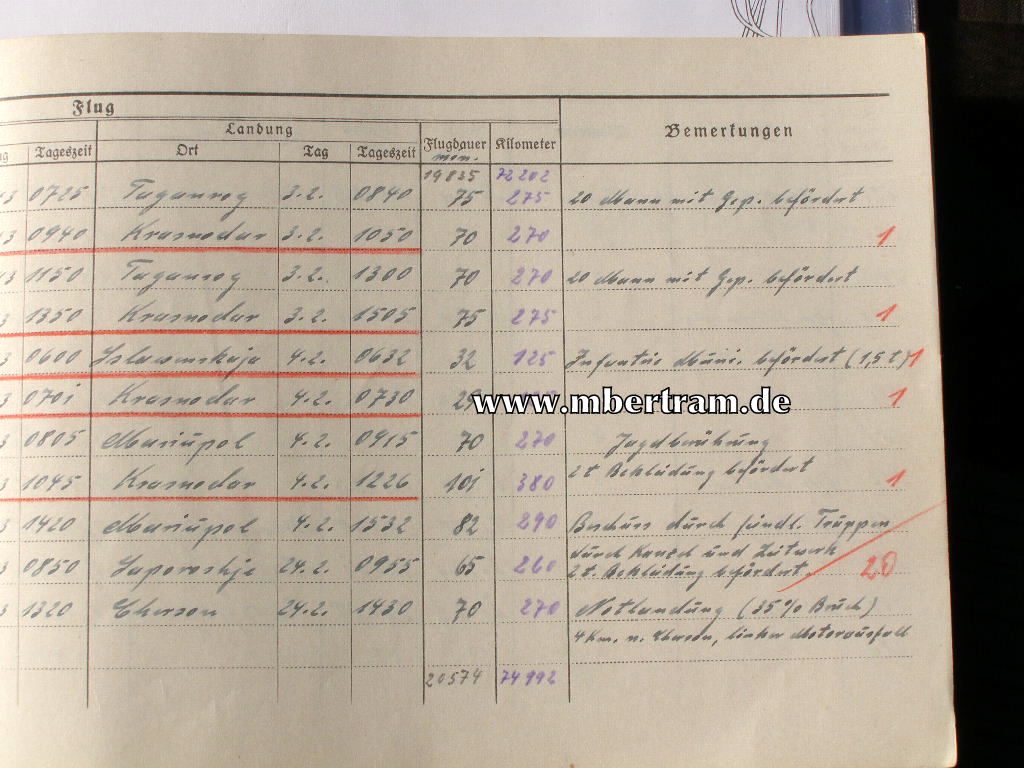 Flug
Landung
Bemerkungen
Tageszeit Ort Tag Tageszeit Flugdauer Kilometer
19835 72202
0725 Taganrog 3.2. 0840 75 275 20 Mann mit Gep. befördert
0940 Krasnodar 3.2. 1050 70 270 1
1150 Taganrog 3.2. 1300 70 270 20 Mann mit Gep. befördert
1350 Krasnodar 3.2. 1505 75 275 1
0600 Slawenskaja 4.2. 0632 32 125 Infanterie Muni. befördert (1,5 t) 1
0701 Krasnodar 4.2. 0730 29 1
www.mbertram.de
0805 Mariupol 4.2. 0915 70 270 Jagdberührung
1045 Krasnodar 4.2. 1226 101 380 2t Bekleidung befördert 1
1420 Mariupol 4.2. 1532 82 290 Beschuss durch feindl. Truppen
durch Kanzel und Leitwerk
0850 Saporoshje 24.2. 0955 65 260 2t. Bekleidung befördert. 20
1320 Cherson 24.2. 1430 70 270 Notlandung (35% Bruch)
4 Km. n. Cherson, linker Motorausfall
20574 74992